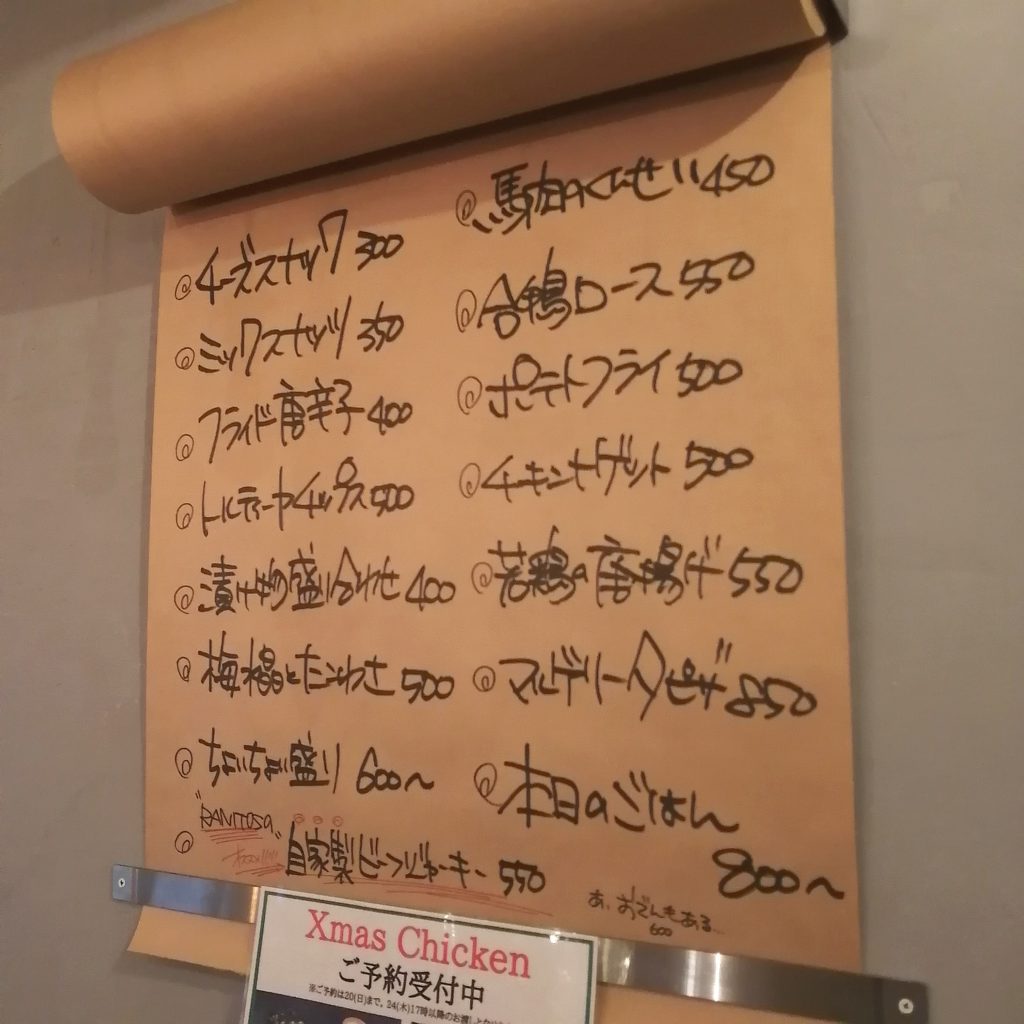 チーズスナック 300
ミックスナッツ 350
フライド唐辛子 400
トルティーヤチップス 500
漬け物盛り合わせ 400
梅水晶とたこわさ 500
ちょいちょい盛り 600〜
自家製ビーフジャーキー 550
馬肉のくんせい 450
合鴨ロース 550
ポテトフライ 500
チキンナゲット 500
若鶏の唐揚げ 550
マルゲリータピザ 850
本日のごはん
800〜
あ、おでんもある...
600
Xmas Chicken
ご予約受付中
※ご予約は20(日)まで。24(木)17時以降のお渡し